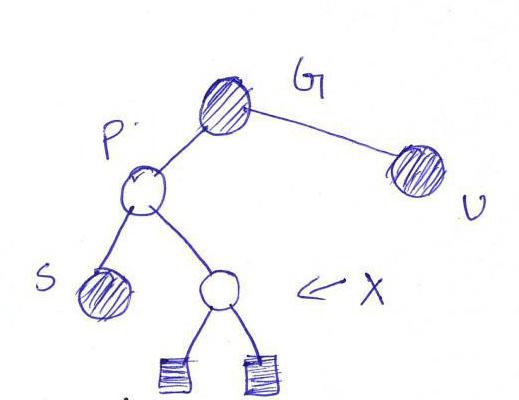 G
P
U
S
← X